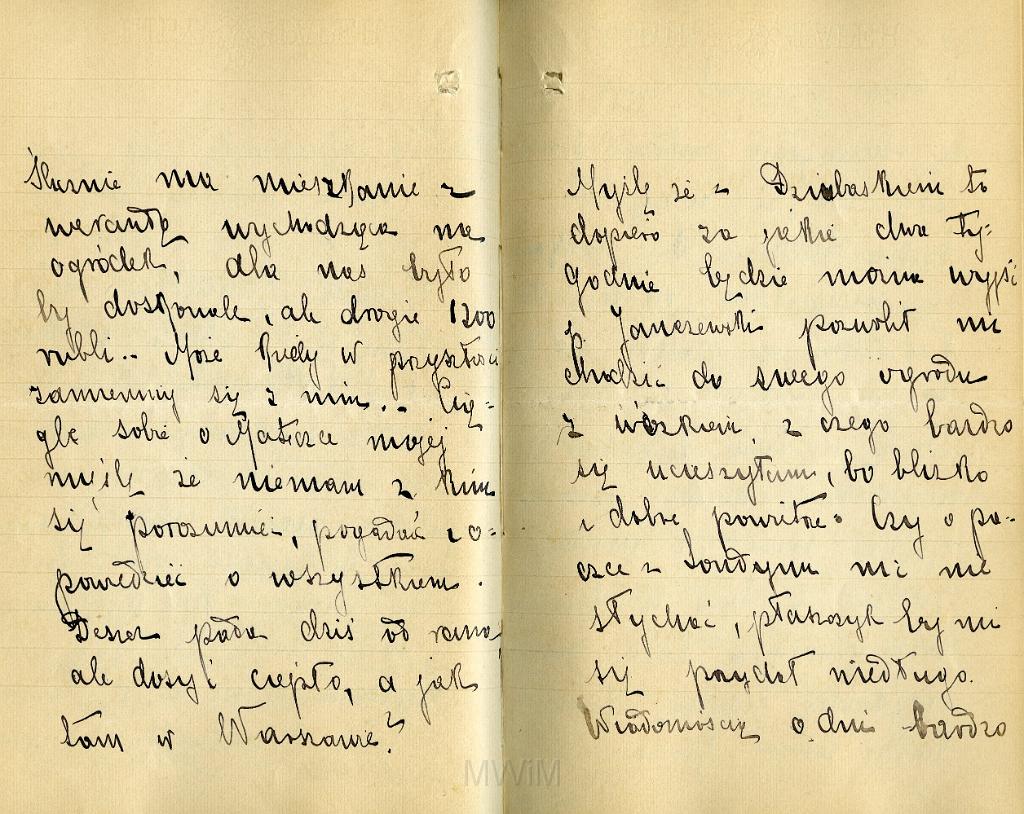 ślicznie ma mieszkanie z
werandą wychodzącą na
ogródek, dla nas było
by doskonale, ale drogie 1200
rubli.. Może kiedy w przyszłości
zamienimy się z nim.. Cią-
gle sobie o Mateczce mojej
myślę że niemam z kim
się porozumieć, pogadać i o-
powiedzieć o wszystkiem.
Deszcz pada dziś od rana
ale dosyć ciepło, a jak
tam w Warszawie?
Myślę że z Dziubaskiem to
dopiero za jakie dwa ty-
godnie będzie można wyjść
p. Janczewski pozwolił mi
chodzić do swego ogrodu
z wózkiem, z czego bardzo
się ucieszyłam, bo blizko
i dobre powietrze. Czy o pa-
czce z Londynu nic nie
słychać, płaszczyk by mi
się przydał niedługo.
Wiadomością o dni bardzo
MWiM